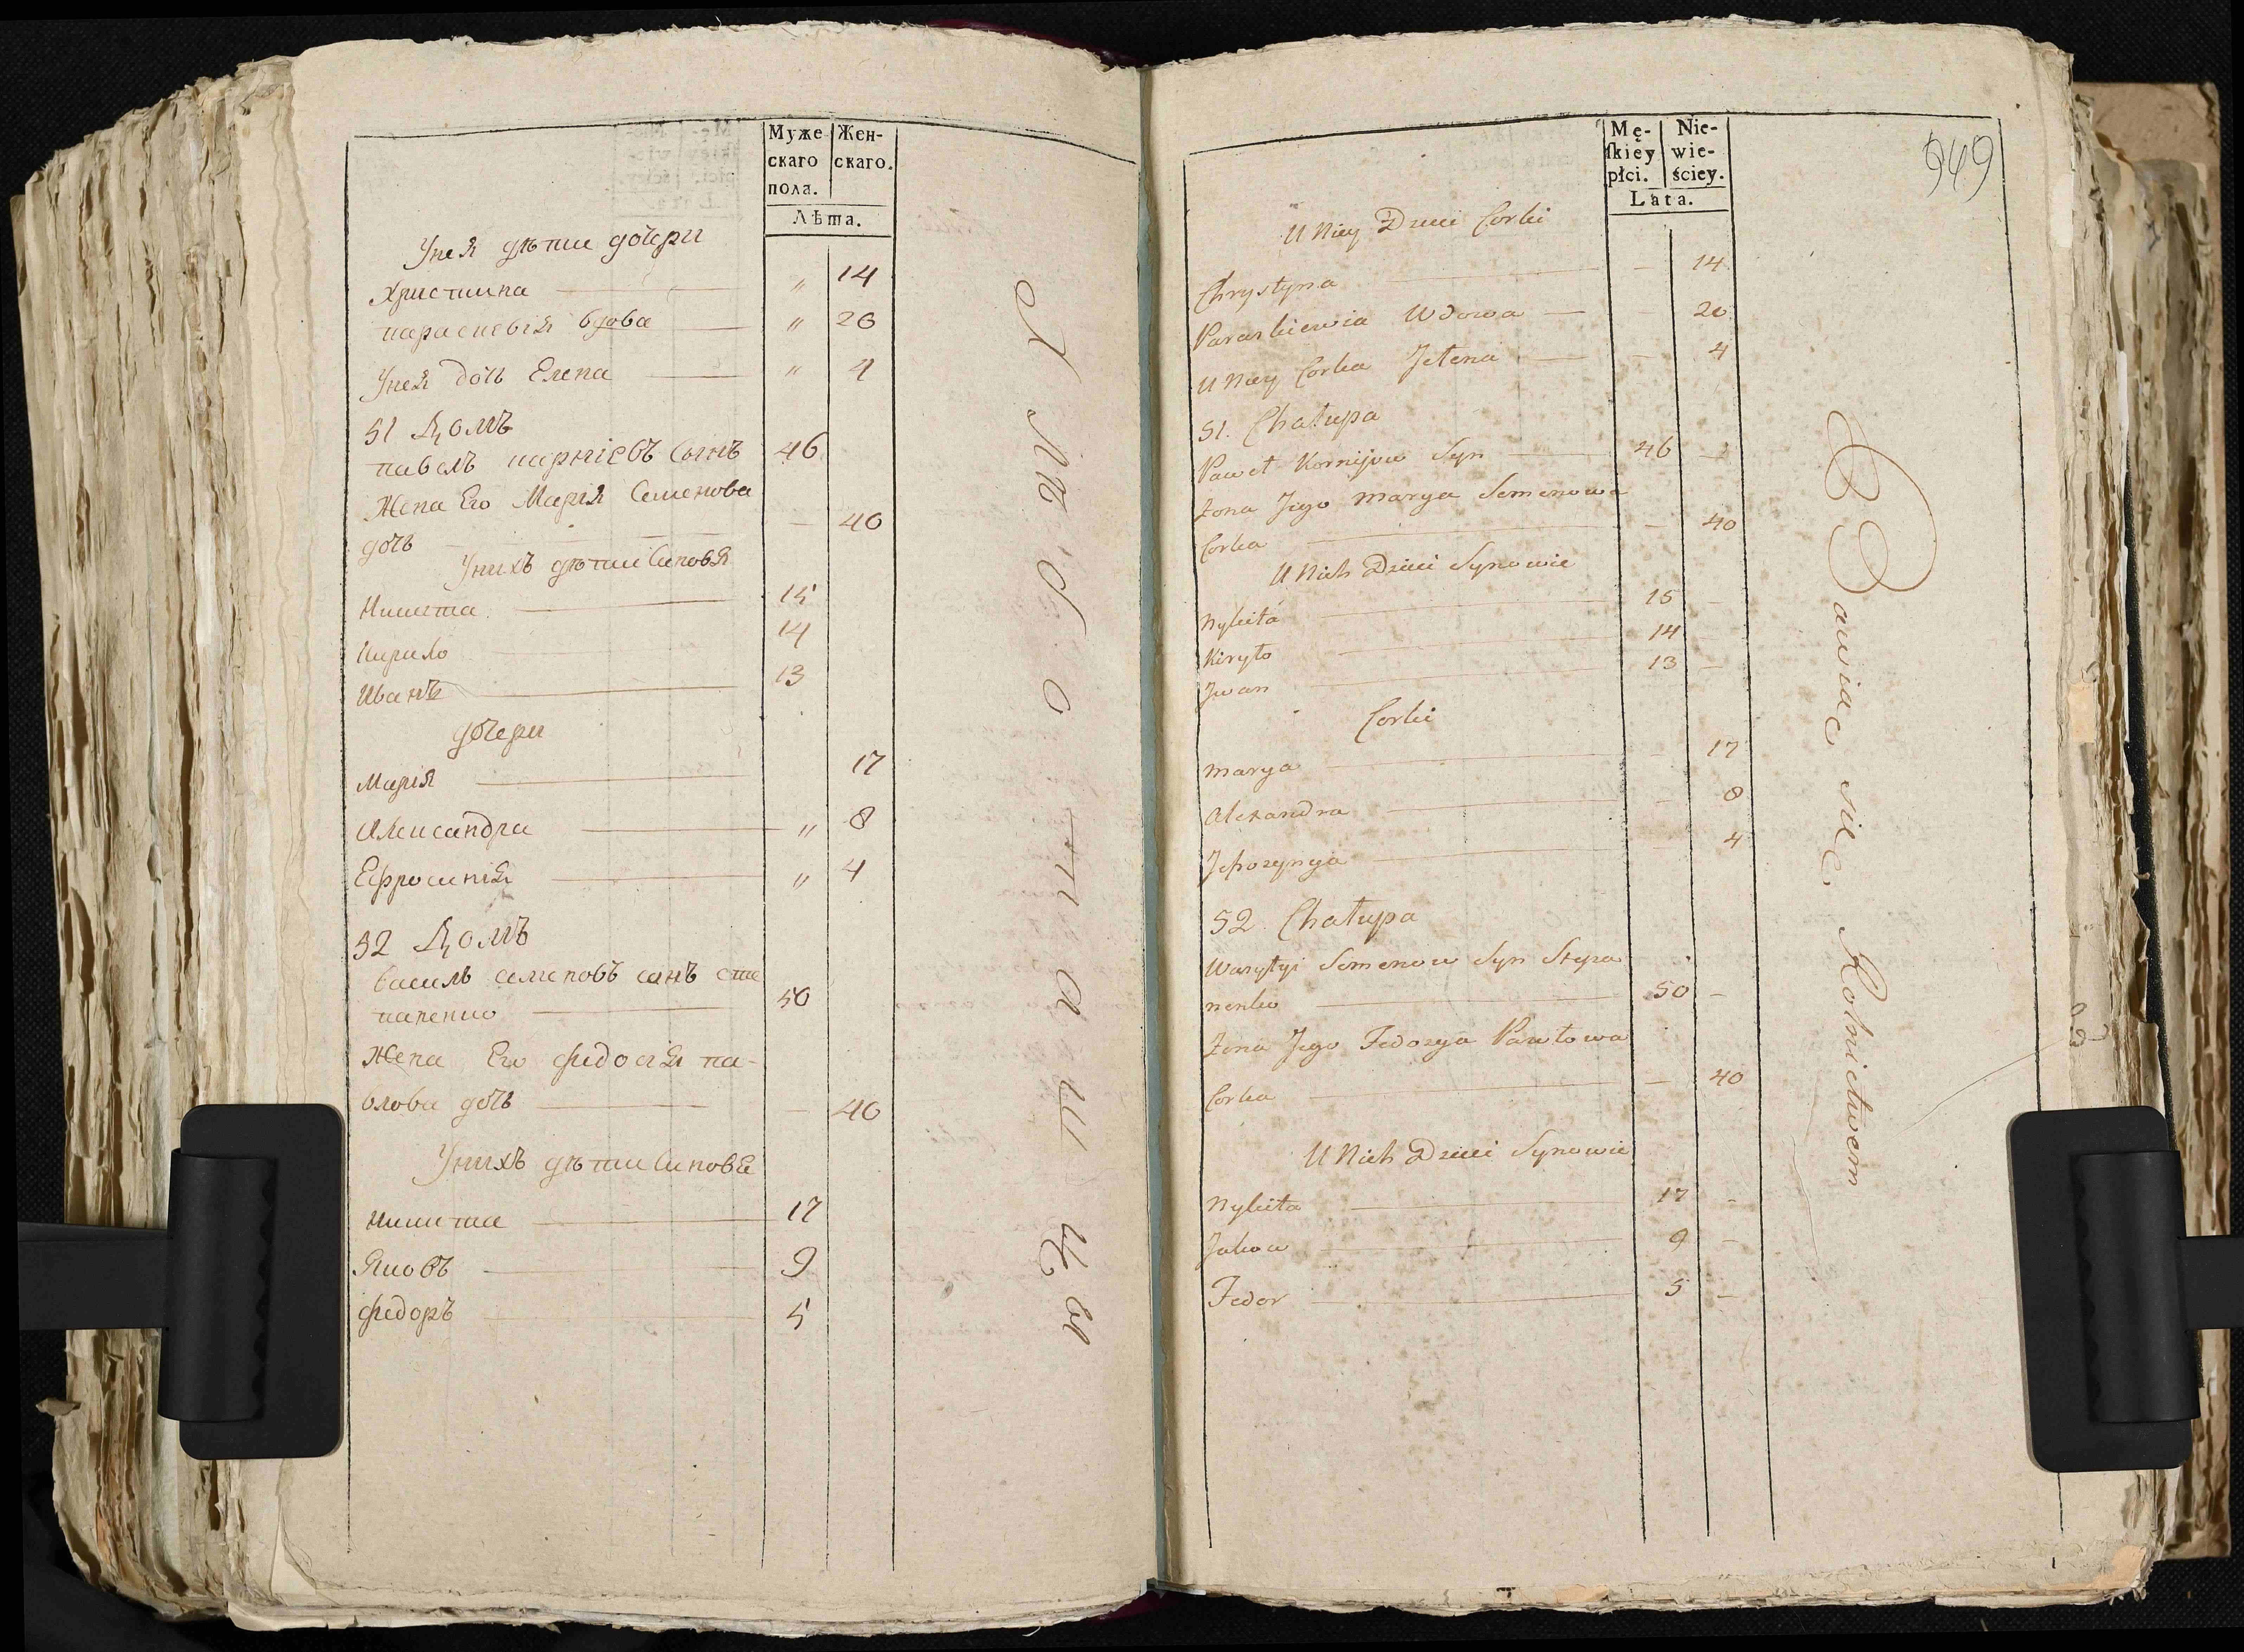 Муже-
скаго
пола.
Жен-
скаго.
Лѣта.
Унея дѣти дочери
Христина — „ 14
параскевія вдова — „ 20
Унея дочь Елена — „ 4
51 Домъ
павелъ карніевъ сынъ 46
Жена Его Марія Семенова
дочь — 40
Унихъ дѣти Синовя
Никита — 15
Кирило — 14
Иванъ — 13
дочери
Марія — 17
Александра — „ 8
Ефросинія — „ 4
52 Домъ
Василь семеновъ синъ сте
паненко — 50
Жена Его федосія па-
влова дочь — 40
Унихъ дѣти Синовя
Никита — 17
Яковъ — 9
федоръ — 5
Mę-
skiey
płci.
Nie-
wie-
ściey.
Lata.
949
U Niey Dzieci Corki
Chrystyna — 14
Paraskiewia Wdowa — 20
U Niey Corka Jelena — 4
51. Chałupa
Paweł Kornijow Syn — 46 —
Zona Jego Marya Semenowa
Corka — 40
U Nich Dzieci Synowie
Nykita — 15 —
Kiryło — 14 —
Jwan — 13 —
Corki
Marya — 17
Alexandra — 8
Jefrozynya — 4
52. Chałupa
Wasylyi Semenow Syn Stepa
nenko — 50 —
Zona Jego Fedosya Pawłowa
Corka — 40
U Nich Dzieci Synowie
Nykita — 17 —
Jakow — 9 —
Fedor — 5 —
Bawiąc się Rolnictwem